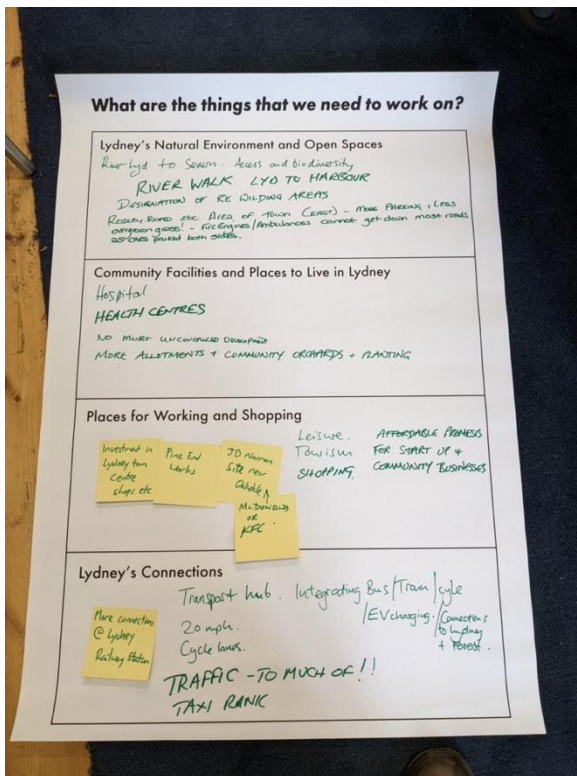 What are the things that we need to work on?
Lydney's Natural Environment and Open Spaces
River Lyd to Severn. Access and biodiversity
RIVER WALK LYD TO HARBOUR
DESIGNATION OF RE WILDING AREAS
Road etc Area of Town (EAST) - More PARKING, Less
overgrown grass! - Fire Engines/Ambulances cannot get down most roads
as cars parked both sides.
Community Facilities and Places to Live in Lydney
Hospital
HEALTH CENTRES
NO MORE DEVELOPMENT
MORE ALLOTMENTS + COMMUNITY ORCHARDS + PLANTING
Places for Working and Shopping
Investment in
Lydney town
Centre
shops etc
Pine End
Works
JD Norman
Site new
McDONALDS
OR
KFC
Leisure.
Tourism
SHOPPING.
AFFORDABLE PREMISES
FOR START UP +
COMMUNITY BUSINESSES
Lydney's Connections
More connections
@ Lydney
Railway Station
Transport hub. Integrating Bus/Train/cycle
/EV charging. /Connections
to Lydney
+ Forest.
20 mph.
Cycle lanes.
TRAFFIC - TO MUCH OF!!
TAXI RANK